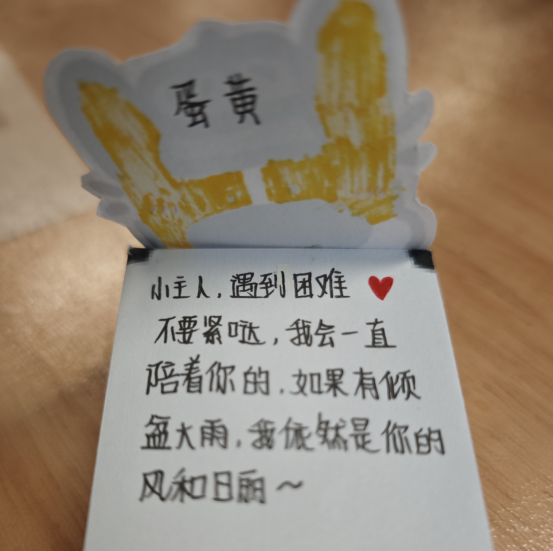 蛋黄
小主人,遇到困难
不要紧哒,我会一直
陪着你的.如果有倾
盆大雨,我依然是你的
风和日丽~